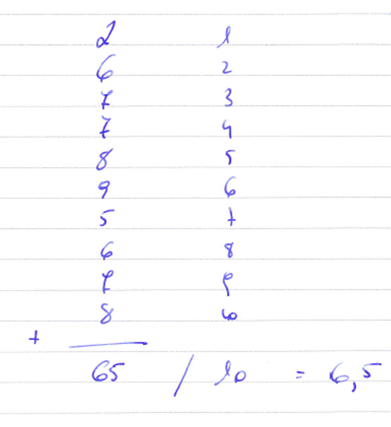 2 1
6 2
7 3
7 4
8 5
9 6
5 7
6 8
7 9
8 10
+
65 / 10 = 6,5